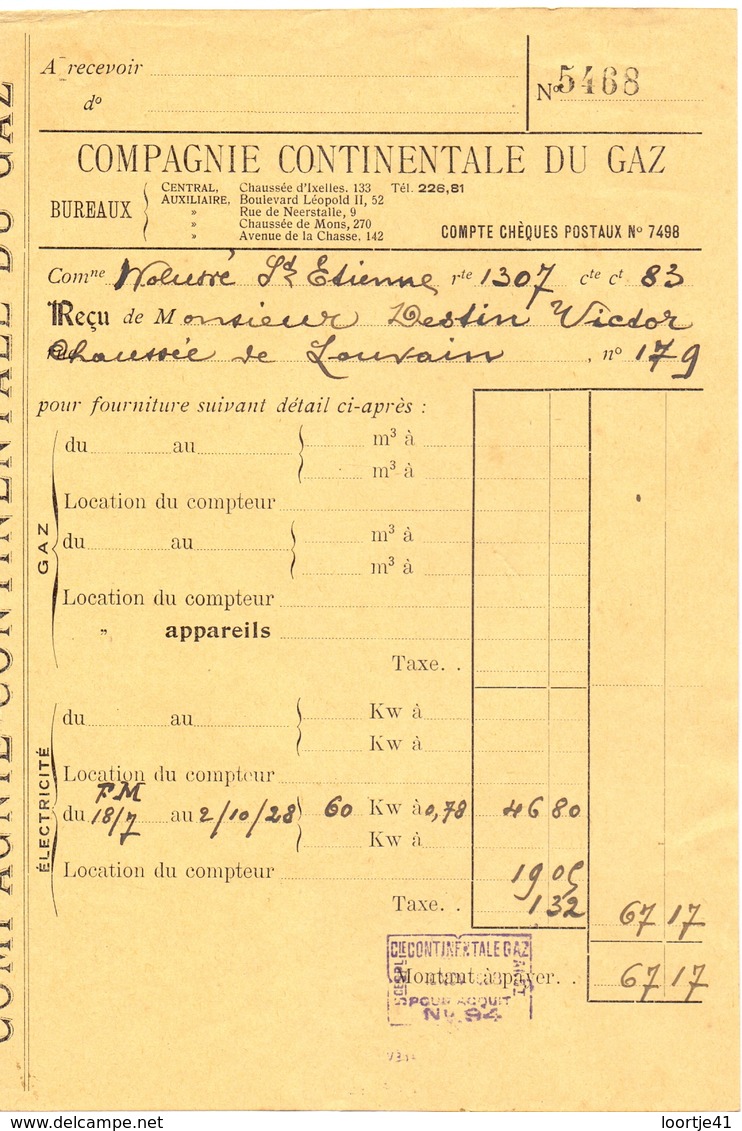 A recevoir
dº
Nº 5468
COMPAGNIE CONTINENTALE DU GAZ
BUREAUX
CENTRAL, Chaussée d'Ixelles. 133 Tél. 226,81
AUXILIAIRE, Boulevard Léopold II, 52
» Rue de Neerstalle, 9
» Chaussée de Mons, 270
» Avenue de la Chasse. 142
COMPTE CHÈQUES POSTAUX Nº 7498
Comne Woluwé St Etienne rte 1307 cte ct 83
Reçu de Monsieur Destin Victor
rue Chaussée de Louvain, nº 179
pour fourniture suivant détail ci-après :
GAZ
du au m³ à
m³ à
Location du compteur
du au m³ à
m³ à
Location du compteur
» appareils
Taxe. .
ÉLECTRICITÉ
du au Kw à
Kw à
Location du compteur
FM
du 18/7 au 2/10/28 60 Kw à 0,78 46 80
Kw à
Location du compteur 19 05
Taxe. . 1 32 67 17
Montant à payer. . 67 17
CIE CONTINENTALE GAZ
POUR ACQUIT
Nº 94
COMPAGNIE CONTINENTALE DU GAZ
loortje41
www.delcampe.net